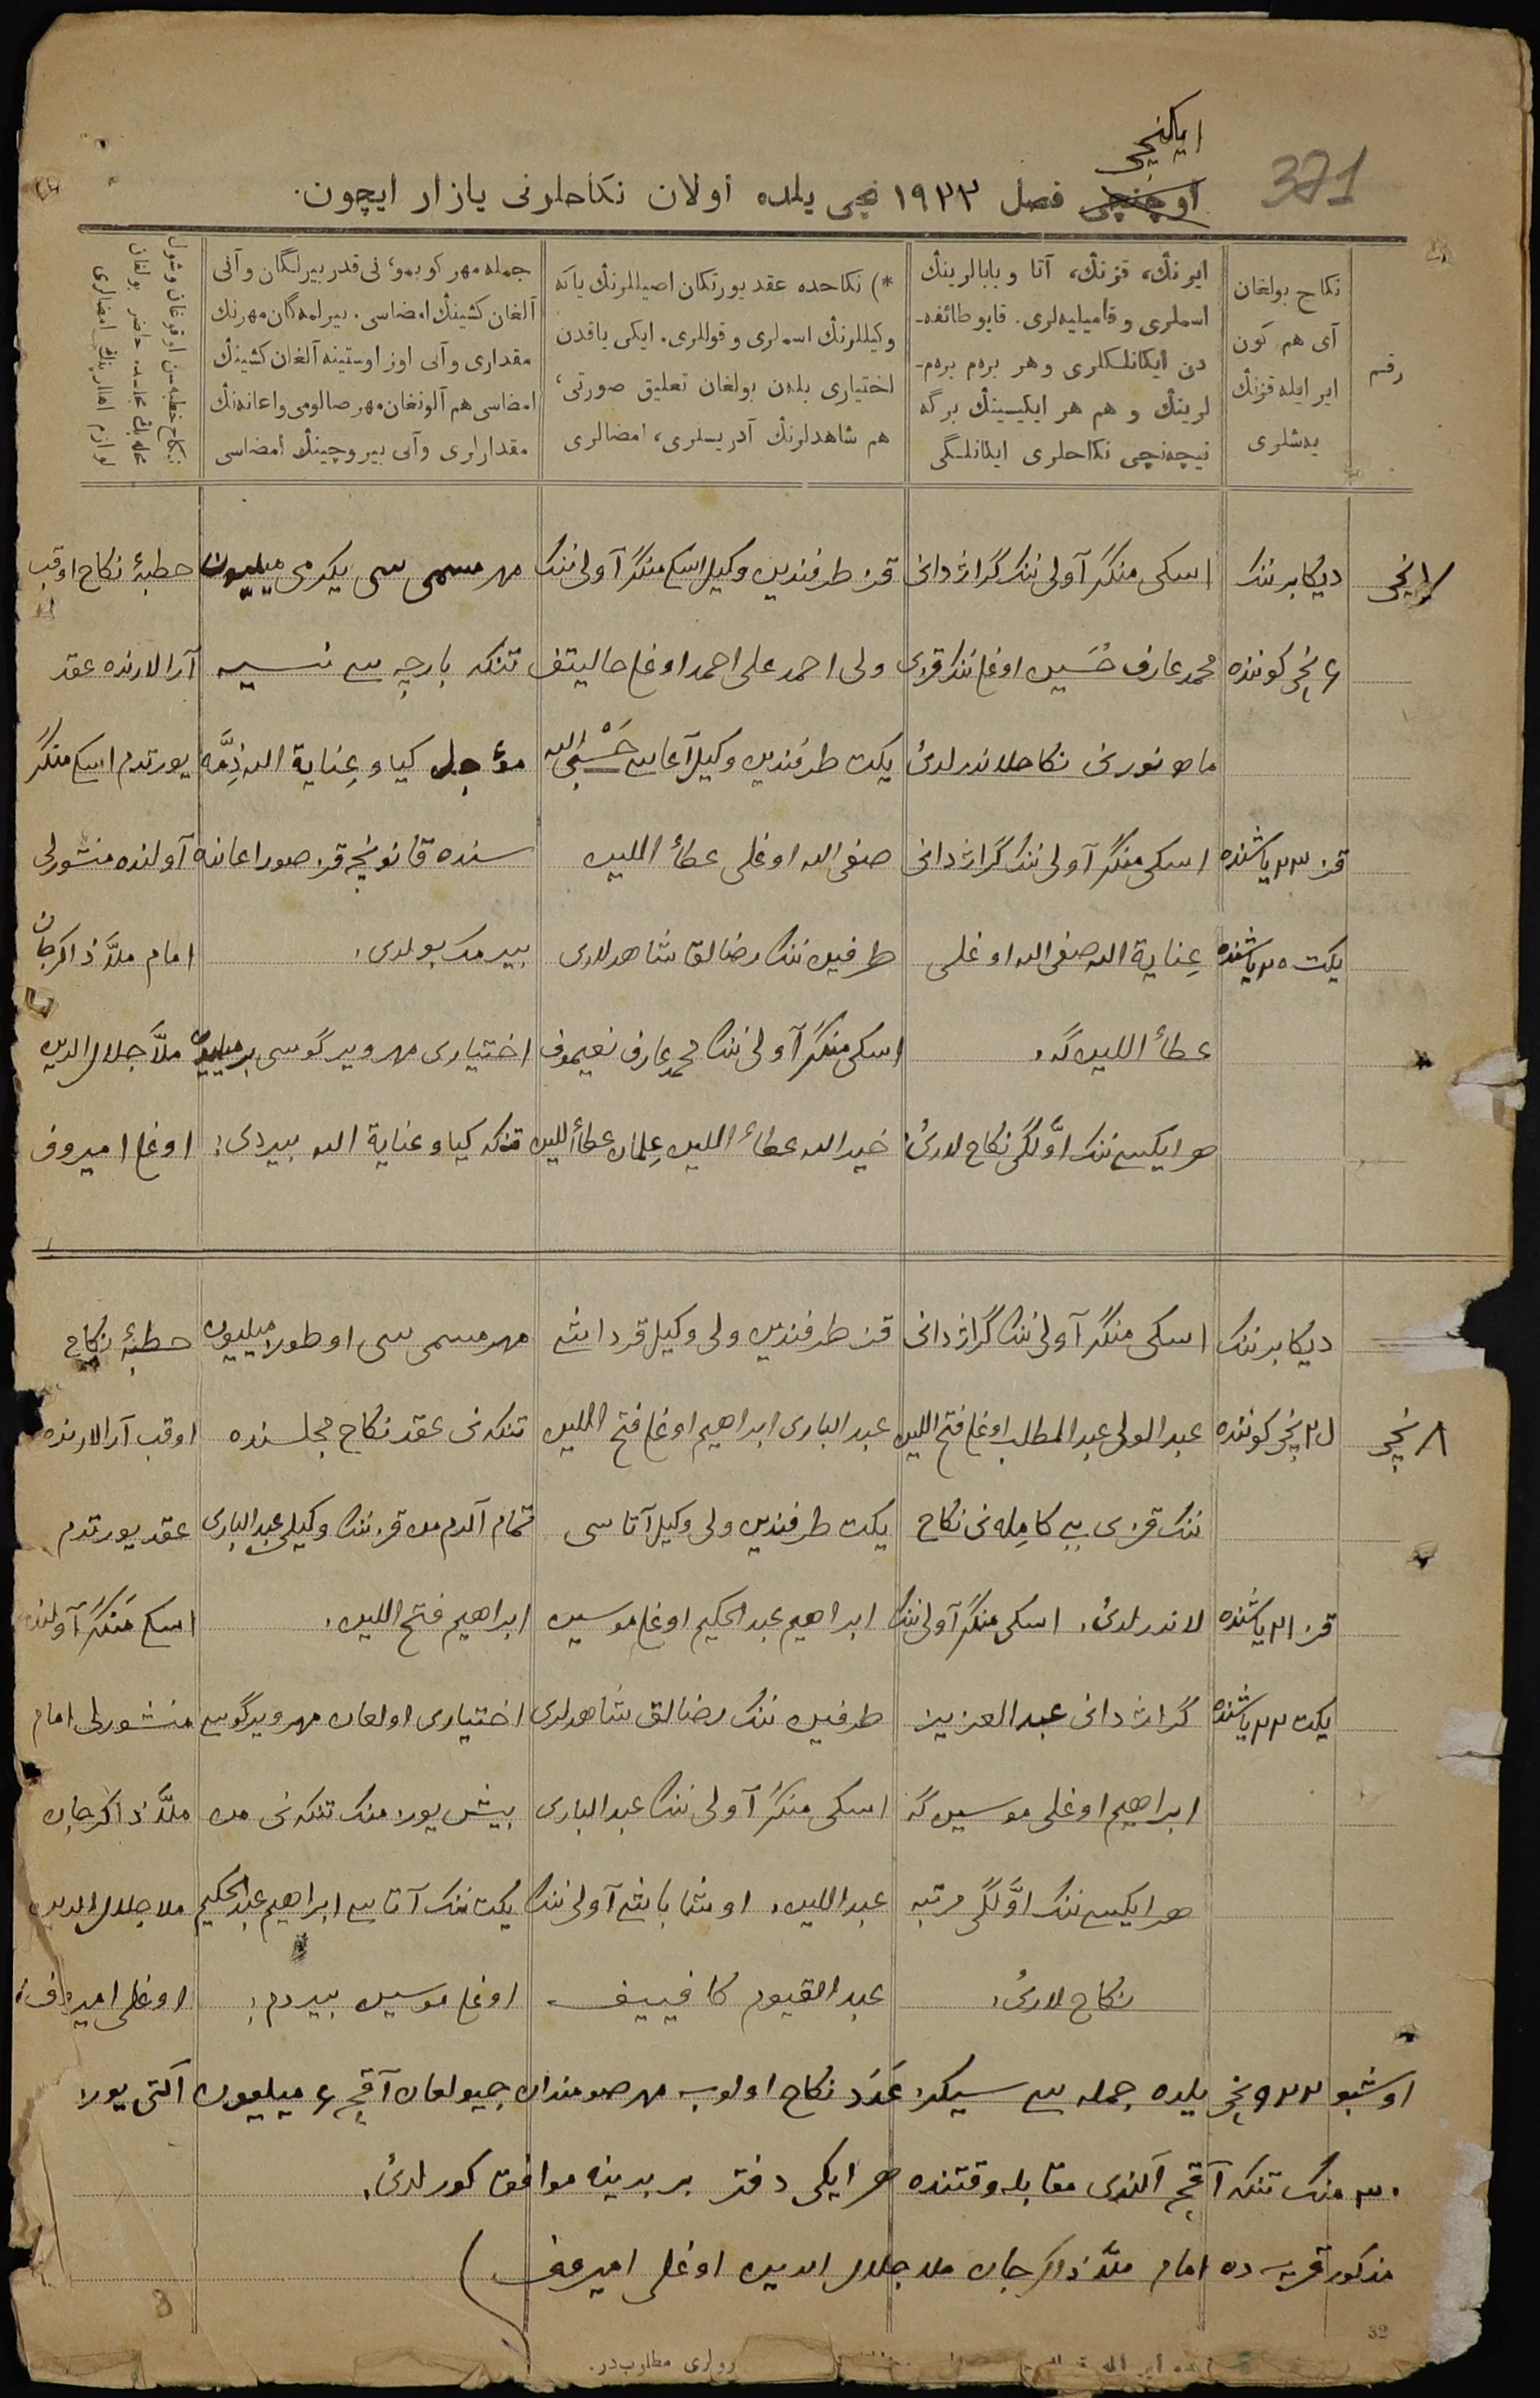 371
ایکنچی
اوچنچی فصل ١٩٢٣ نچی یلده اولان نكاحلرنی یازار ایچون.
رقم
نكاح بولغان
آی هم كون
ایر ایله قزنڭ
یەشلری
ایرنڭ، قزنڭ، آتا و بابالرینڭ
اسملری و فامیلیەلری. قایو طائفه‌ـ
دن ایكانلكلری و هر برەم برەم‌ـ
لرینڭ و هم هر ایكیسینڭ برگه
نیچەنچی نكاحلری ایكانلگی
*) نكاحده عقد یورتكان اصیللرنڭ یاكه
وكیللرنڭ اسملری و قوللری. ایكی یاقدن
اختیاری بلەن بولغان تعلیق صورتی،
هم شاهدلرنڭ آدریسلری، امضالری
جمله مهر كوبمو، نی قدر بیرلگان و آنی
آلغان كشینڭ امضاسی. بیرلمەگان مهرنڭ
مقداری و آنی اوز اوستینه آلغان كشینڭ
امضاسی هم آلونغان مهر صالومی و اعانەنڭ
مقدارلری و آنی بیروچینڭ امضاسی
نكاح خطبەسن اوقوغان و شول
بولغان
امضالری
٧ نچی
دیكابرننك
٤ نچی كوننده
قز ٢٣ یاشنده
یكت ٢٥ یاشنده
اسكی منگر آولی ننك گراژدانی
محمد عارف حُسَین اوغلی ننك قزی
ماه نورنی نكاحلاندرلدی
اسكی منگر آولی ننك گراژدانی
عِنایة الله صفی الله اوغلی
عطاء اللین گه.
هر ایكیسی ننك اوَّلگی نكاح لاری.
قز طرفندین وكیل اسكی منگر آولی ننك
ولی احمد علی احمد اوغلی حالیتف
یكت طرفندین وكیل آغاسی حَسْبی الله
صفی الله اوغلی عطاء اللین
طرفین ننك رضالق شاهدلری
اسكی منگر آولی ننك محمد عارف نعیموف
خیرالله عطاء اللین عِلمان عطاء اللین
مهر مسمی سی یكرمی میلیون
تنكه بارچه سی نسیه
مؤجل كیاو عِنایة الله ذِمَّه
سنده قانونچه قز صورا اعانه
بیرمك بولدی.
اختیاری مهر ویرگوسی بر میلیون
تنكه كیاو عنایة الله بیردی.
خطبۀ نكاح اوقب
آرالارنده عقد
یورتدم اسكی منگر
آولنده منشورلی
امام ملَّا ذاكرجان
ملَّا جلال الدین
اوغلی امیروف
٨ نچی
دیكابرننك
٢٠ نچی كوننده
قز ٢١ یاشنده
یكت ٢٢ یاشنده
اسكی منگر آولی ننك گراژدانی
عبد الولی عبد المطلب اوغلی فتح اللین
ننك قزی بی بی كامِله نی نكاح
لاندرلدی. اسكی منگر آولی ننك
گراژدانی عبد العزیز
ابراهیم اوغلی موسین گه
هر ایكیسی ننك اوَّلگی مرتبه
نكاح لاری.
قز طرفندین ولی وكیل قرداشی
عبد الباری ابراهیم اوغلی فتح اللین
یكت طرفندین ولی وكیل آتاسی
ابراهیم عبد الحكیم اوغلی موسین
طرفین ننك رضالق شاهدلری
اسكی منگر آولی ننك عبد الباری
عبد اللین. اوشا باشی آولی ننك
عبد القیوم كافییف
مهر مسمی سی اوطوز میلیون
تنكه نی عقد نكاح مجلسنده
تمام آلدم من قز ننك وكیلی عبد الباری
ابراهیم فتح اللین.
اختیاری اولغان مهر ویرگوسی
بیش یوز منك تنكه نی من
یكت ننك آتاسی ابراهیم عبد الحكیم
اوغلی موسین بیردم.
خطبۀ نكاح
اوقب آرالارنده
عقد یورتدم
اسكی منگر آولنده
منشورلی امام
ملَّا ذاكرجان
ملا جلال الدین
اوغلی امیروف.
اوشبو ٩٢٣ نچی یلده جمله سی سیكز عَدَد نكاح اولوب مهر صومندان جیولغان آقچه ٤ میلیون آلتی یوز
٣٠ منك تنكه آقچه آلندی مقابله وقتنده هر ایكی دفتر بر برینه موافق كورلدی.
مذكور قریه ده امام ملَّا ذاكرجان ملا جلال الدین اوغلی امیروف
8
32
رولری مطلوبدر.